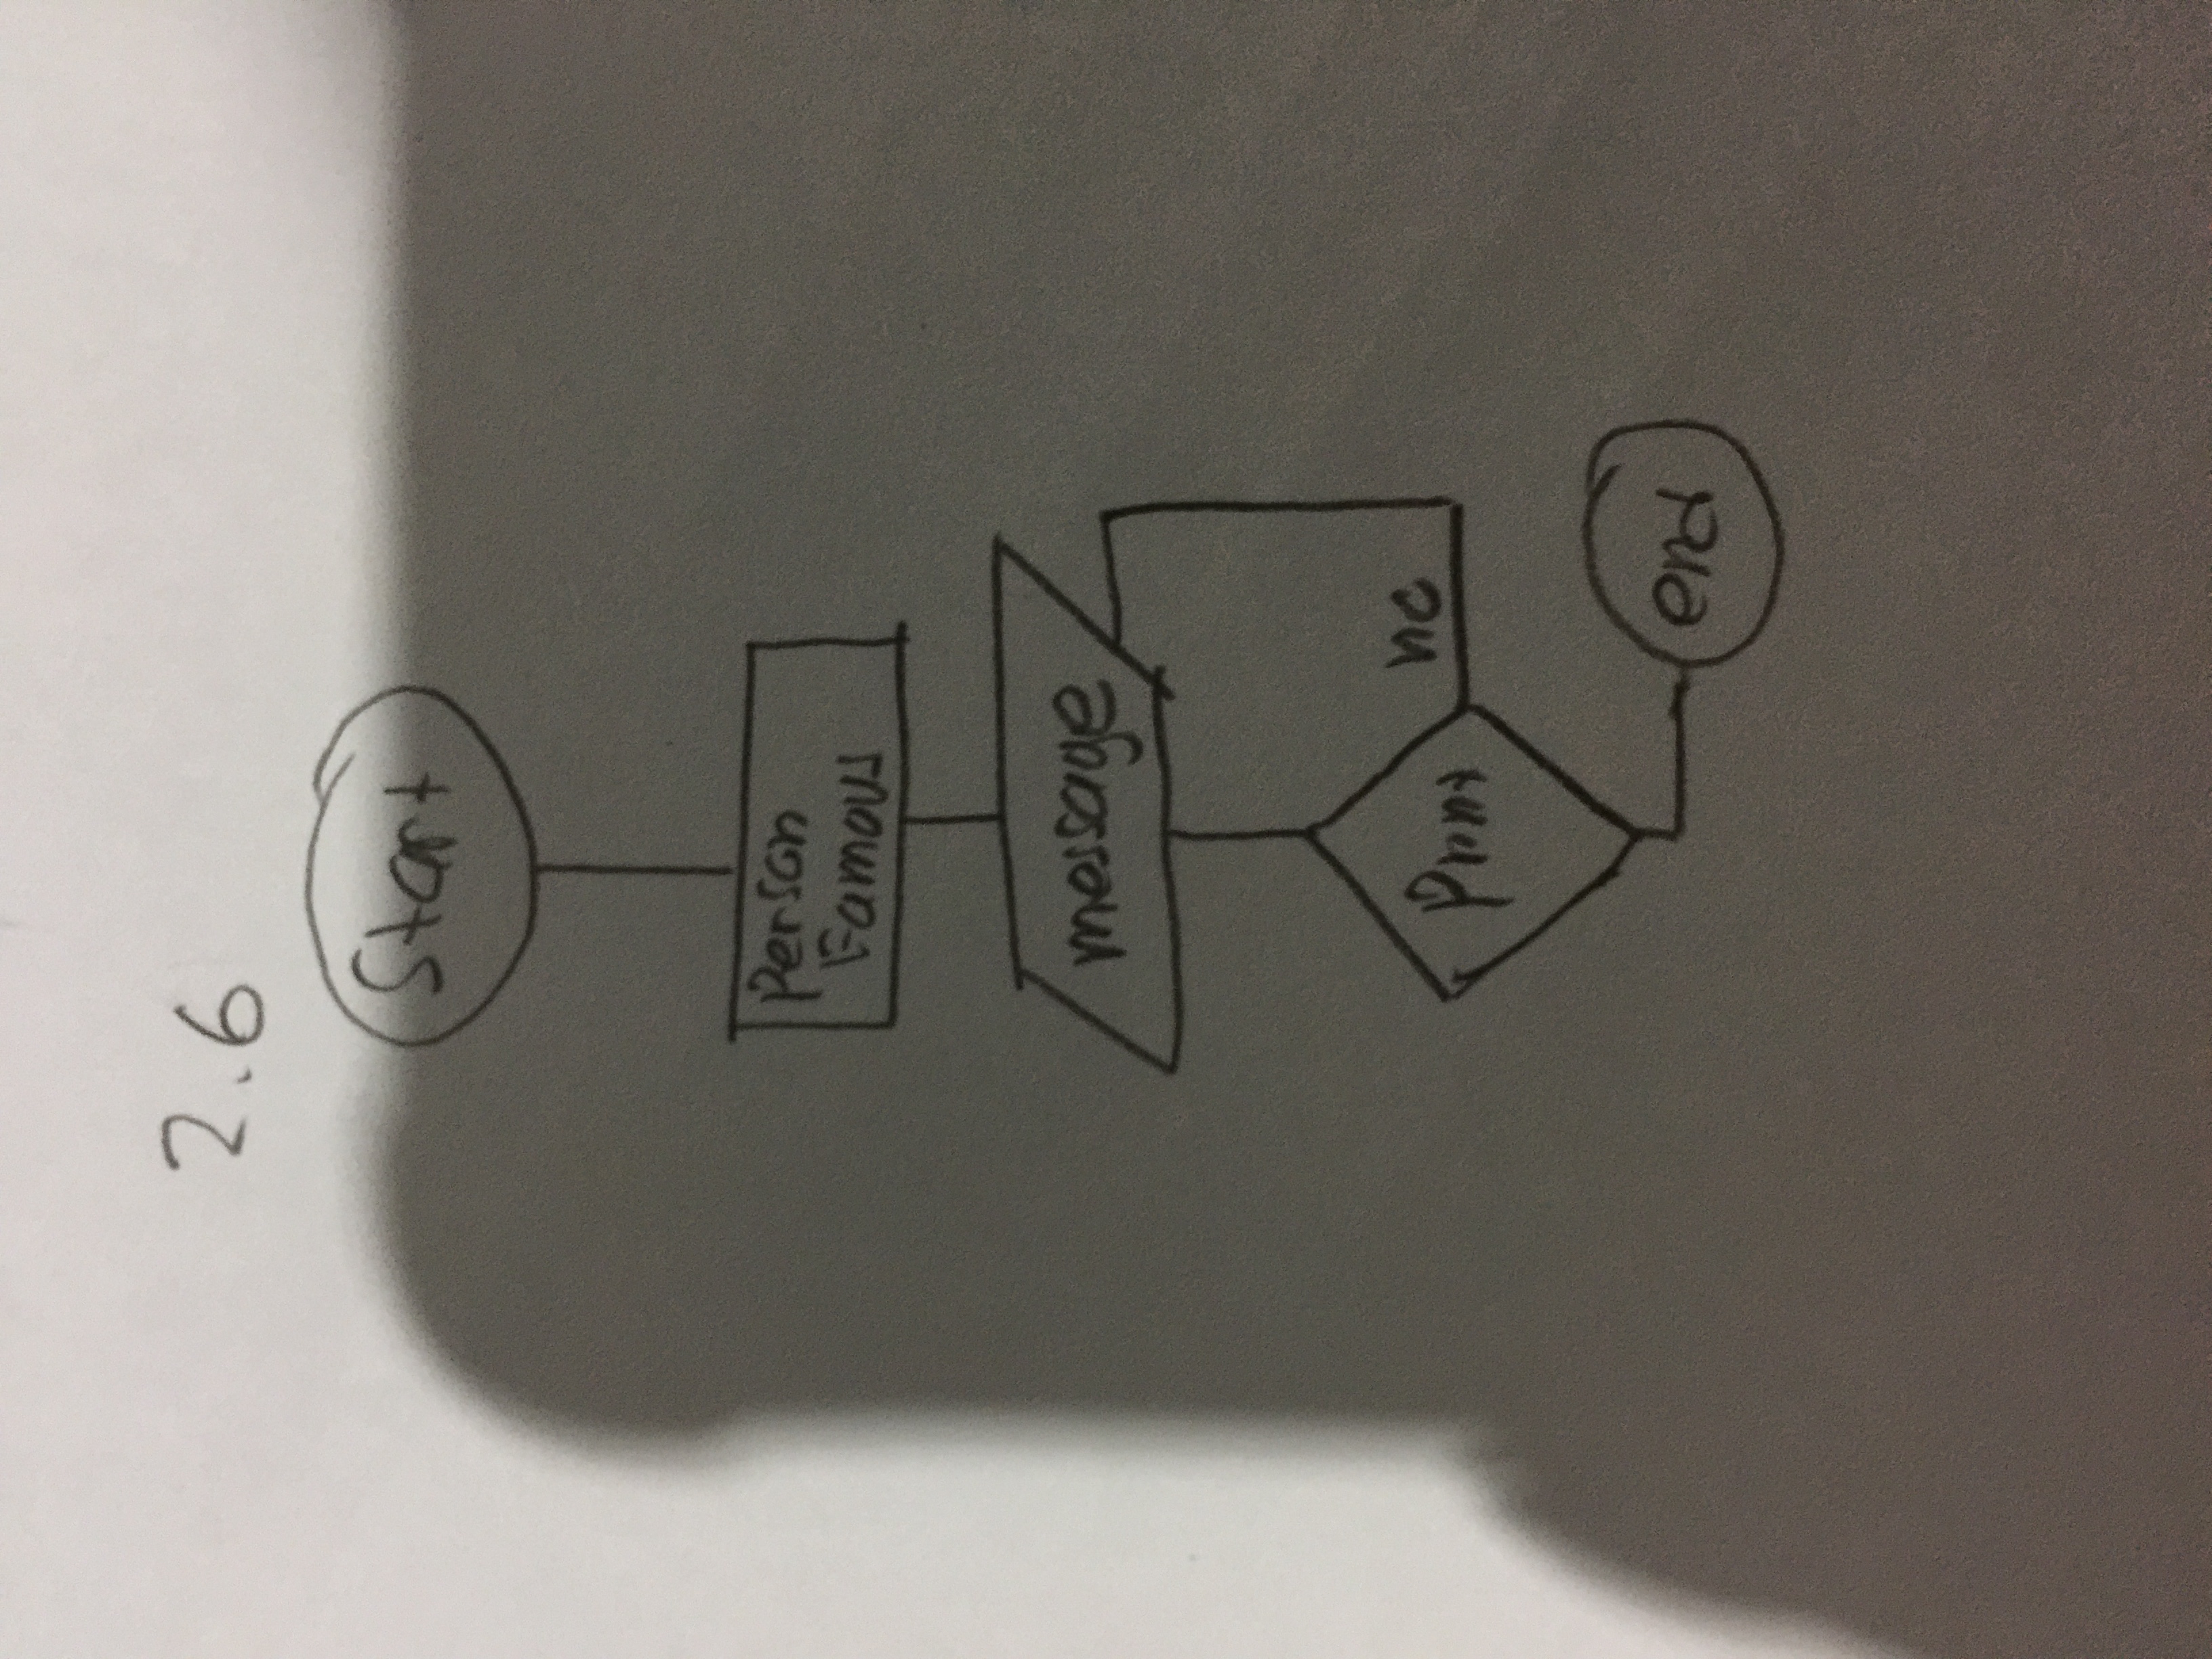 2.6
Start
Person
Famous
message
Print
no
end